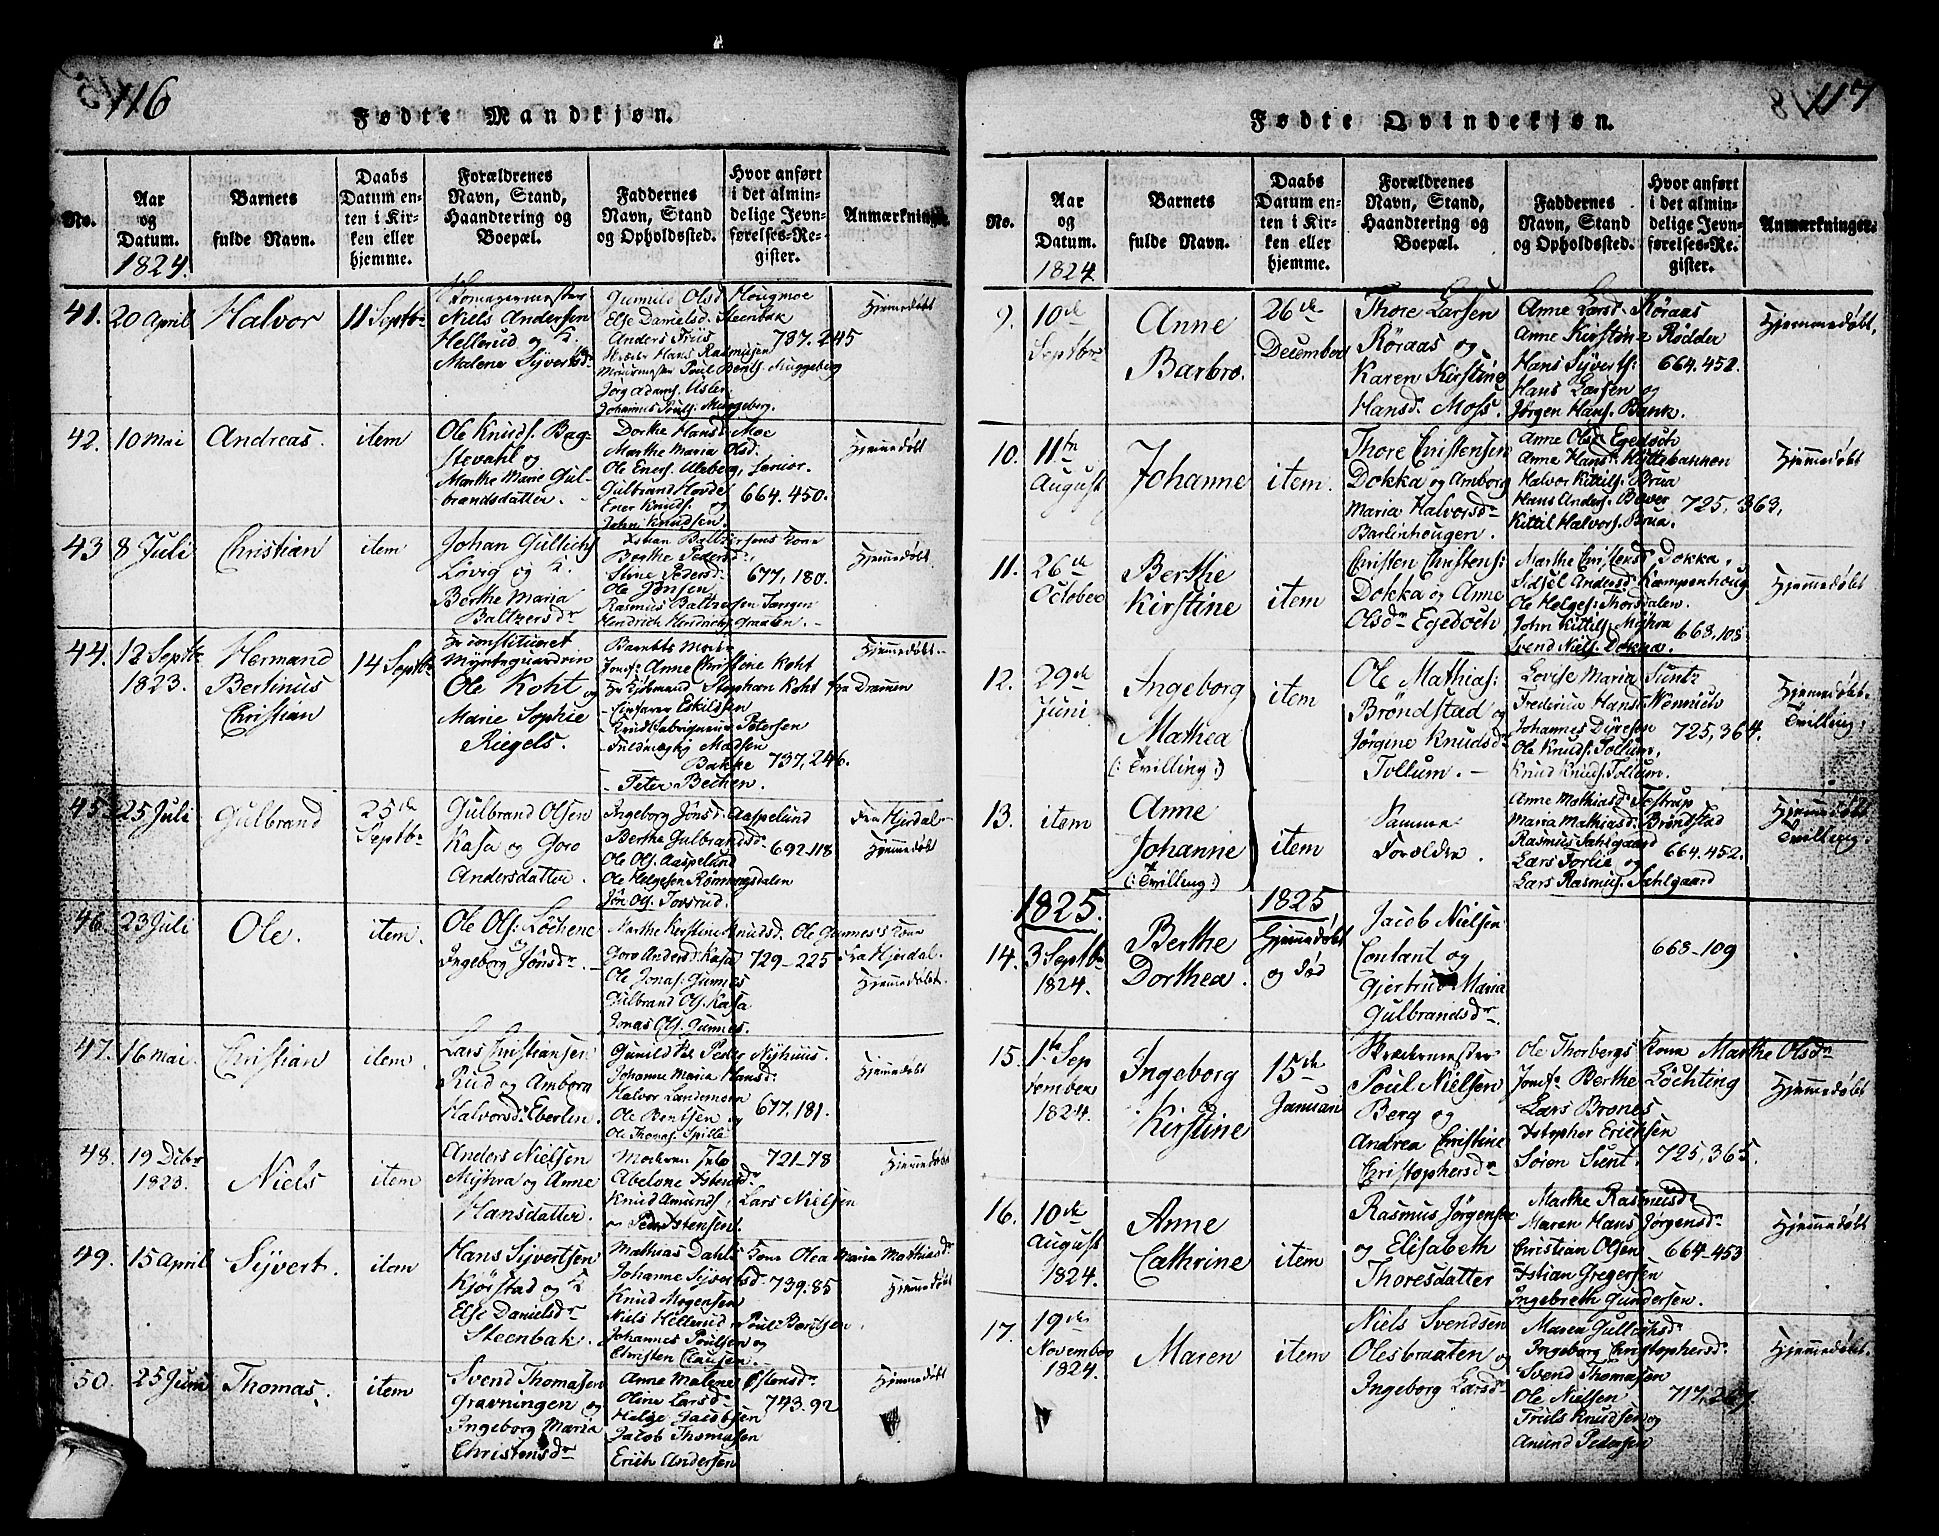 116
Fødte Mandkjøn.
No.
Aar og Datum.
1824.
Barnets fulde Navn.
Daabs Datum enten i Kirken eller hjemme.
Forældrenes Navn, Stand, Haandtering og Boepæl.
Faddernes Navn, Stand og Opholdssted.
Hvor anført i det almindelige Jevnførelses-Register.
Anmærkninger.
41.
20 April
Halvor
11 Septbr
Niels Andersen
Hellerud og K.
Malene Syvertsdr
Gunnild Olsd. Hougmoe
Else Danielsd. Steenbak
Anders Friis
Hans Rasmusen
Poul Bents. Muggeberg
Jørg Adams. Usler
Johannes Pouls. Muggeberg.
737.245
Hjemmedøbt
42.
10 Mai
Andreas.
item
Ole Knuds. Bag-
stevahl og
Marthe Marie Gul-
brandsdatter.
Dorthe Hansd. Moe
Marthe Maria Olsd.
Ole Eners. Aleberg, Senior.
Gulbrand Hovde
Ener Knuds. og
John Knudsen.
664.450.
Hjemmedøbt
43
8 Juli
Christian
item
Johan Gullichs
Løvig og K.
Berthe Maria
Baltzersdr
Baltzersens Kone
Berthe Pedersd.
Stine Pedersd.
Ole Jonsen
Rasmus Baltzersen Tangen
Hendrich Hendrichs. Graalen.
677,180.
Hjemmedøbt
44.
12 Septbr
1823.
Hermand
Bertinus
Christian
14 Septbr
Hr constitueret
Ole Koht og
Marie Sophie
Riegels.
Barnets Moder
Jomf. Anne Christine Koht
Stephan Koht fra Drammen
Eskildsen
Petersen
Fuldmægtig Madsen
Bakke
Peter Bechen.
737,246.
Hjemmedøbt.
45.
25 Juli
Gulbrand
25de
Septbr
Gulbrand Olsen
Kasa og Goro
Andersdatter.
Ingeborg Jonsd. Aaspelund
Berthe Gulbrandsd.
Ole Ols. Aaspelund
Ole Helgesen Rønningsdalen
Jon Ols. Tovsrud.
692.118
Fra Hjerdal
Hjemmedøbt
46.
23 Juli
Ole.
item.
Ole Ols. Løchene
Ingeborg Jonsdr.
Marthe Kirstine Knudsd. Ole Gunnes's Kone
Goro Andersd. Kasa
Ole Jonas. Gunnes
Gulbrand Ols. Kasa
Jonas Ols. Gunnes.
729-225
Fra Hjerdal.
Hjemmedøbt.
47.
16 Mai.
Christian
item.
Lars Christiansen
Rud og Amborg
Halvorsd. Eberlin.
Gunild Pal. Peder Nyhuus.
Johanne Maria Hansd.
Halvor Landemoen
Ole Bentsen og
Ole Thomas. Spille
677,181.
Hjemmedøbt
48.
19 Debr
1823.
Niels
item
Anders Nielsen
Myhra og Anne
Hansdatter.
Abelone Istensdr
Knud Amunds. Lars Nielsen
721-78
Hjemmedøbt
49.
15 April
Syvert.
item
Hans Syvertsen
Kjørstad og K.
Else Danielsdr
Steenbak.
Mathias Dahls Kone Olea Maria Mathiasdr
Johanne Syvertsd.
Knud Mogensen
Niels Hellerud Poul Bentsen.
Johannes Poulsen og
Christen Clausen.
739.85
Hjemmedøbt
50.
25 Juni
Thomas.
item
Svend Thomasen
Gravningen og
Ingeborg Maria
Christensdr
Anne Malene Østensd.
Oline Larsdr
Helge Jacobsen
Jacob Thomasen
Erich Andersen
743.92
Hjemmedøbt
117
Fødte Qvindekjøn.
No.
Aar og Datum.
1824
Barnets fulde Navn.
Daabs Datum enten i Kirken eller hjemme.
Forældrenes Navn, Stand, Haandtering og Boepæl.
Faddernes Navn, Stand og Opholdssted.
Hvor anført i det almindelige Jevnførelses-Register.
Anmærkninger.
9.
10de
Septbr
Anne
Barbro.
26de
December
Thore Larsen
Røraas og
Karen Kirstine
Hansd. Moss.
Anne Larsd. Røraas
Anne Kirstine Rødder
Hans Syverts.
Hans Larsen og
Jørgen Hans. Bank.
664.452.
Hjemmedøbt.
10.
11te
August
Johanne
item.
Thore Christensen
Dokka og Amborg
Maria Halvorsdr
Barlinhougen.
Anne Olsd. Egedoch
Anne Hansdr Hyttebannen
Halvor Kittils. Brua
Hans Anders. Bæver
Kittil Halvors. Brua.
725,363,
Hjemmedøbt
11.
26de
October
Berthe
Kirstine
item
Christen Christens:
Dokka og Anne
Olsdr Egedoch
Marthe Christensd. Dokka.
Sidsel Andersd. Kampenhoug
Ole Helges. Thorsdalen.
John Kittils. Myhra
Svend Niels. Dokka.
668.108
Hjemmedøbt
12.
29de
Juni
Ingeborg
Mathea
(: Tvilling :)
item
Ole Mathias:
Brøndstad og
Jørgine Knudsdr
Tollum.
Lovise Maria Suntz
Frederica Hans. Wennich
Johannes Dyresen
Ole Knuds. Tollum.
Knud Knuds. Tollum.
725,364.
Hjemmedøbt
Tvilling.
13.
item
Anne
Johanne
(: Tvilling :)
item
Samme
Forældre.
Anne Mathiasd. Testrup
Maria Mathiasd. Brøndstad
Rasmus Sahlgaard
Lars Torlie og
Lars Rasmus. Sahlgaard
664.452.
Hjemmedøbt
Tvilling.
1825.
14.
3 Septbr
1824.
Berthe
Dorthea.
1825
Hjemmedøbt
og død
Jacob Nielsen
Contant og
Gjertrud Maria
Gulbrandsdr
668-109
15.
1ste Sep
tember
1824.
Ingeborg
Kirstine
15de
Januari
Skrædermester
Poul Nielsen
Berg og
Andrea Christine
Christophersdr
Ole Thorbergs Kone Marthe Olsdr
Jomf. Berthe Løchting
Lars Brones
Istopher Ericksen
Søren Sient.
725,365.
Hjemmedøbt
16.
10de
August
1824.
Anne
Cathrine
item
Rasmus Jørgensen
og Elisabeth
Thoresdatter
Marthe Rasmusdr
Maren Hans Jørgensdr
Christian Olsen
Istian Gregersen
Ingebreth Gundersen.
664-453
Hjemmedøbt
17.
19de
November
1824.
Maren
item
Niels Svendsen
Olesbraaten og
Ingeborg Larsdr
Maren Gullichsd.
Ingeborg Christophersd.
Svend Thomasen
Ole Nielsen
Truls Knudsen og
Amund Pedersen
717,267.
Hjemmedøbt.